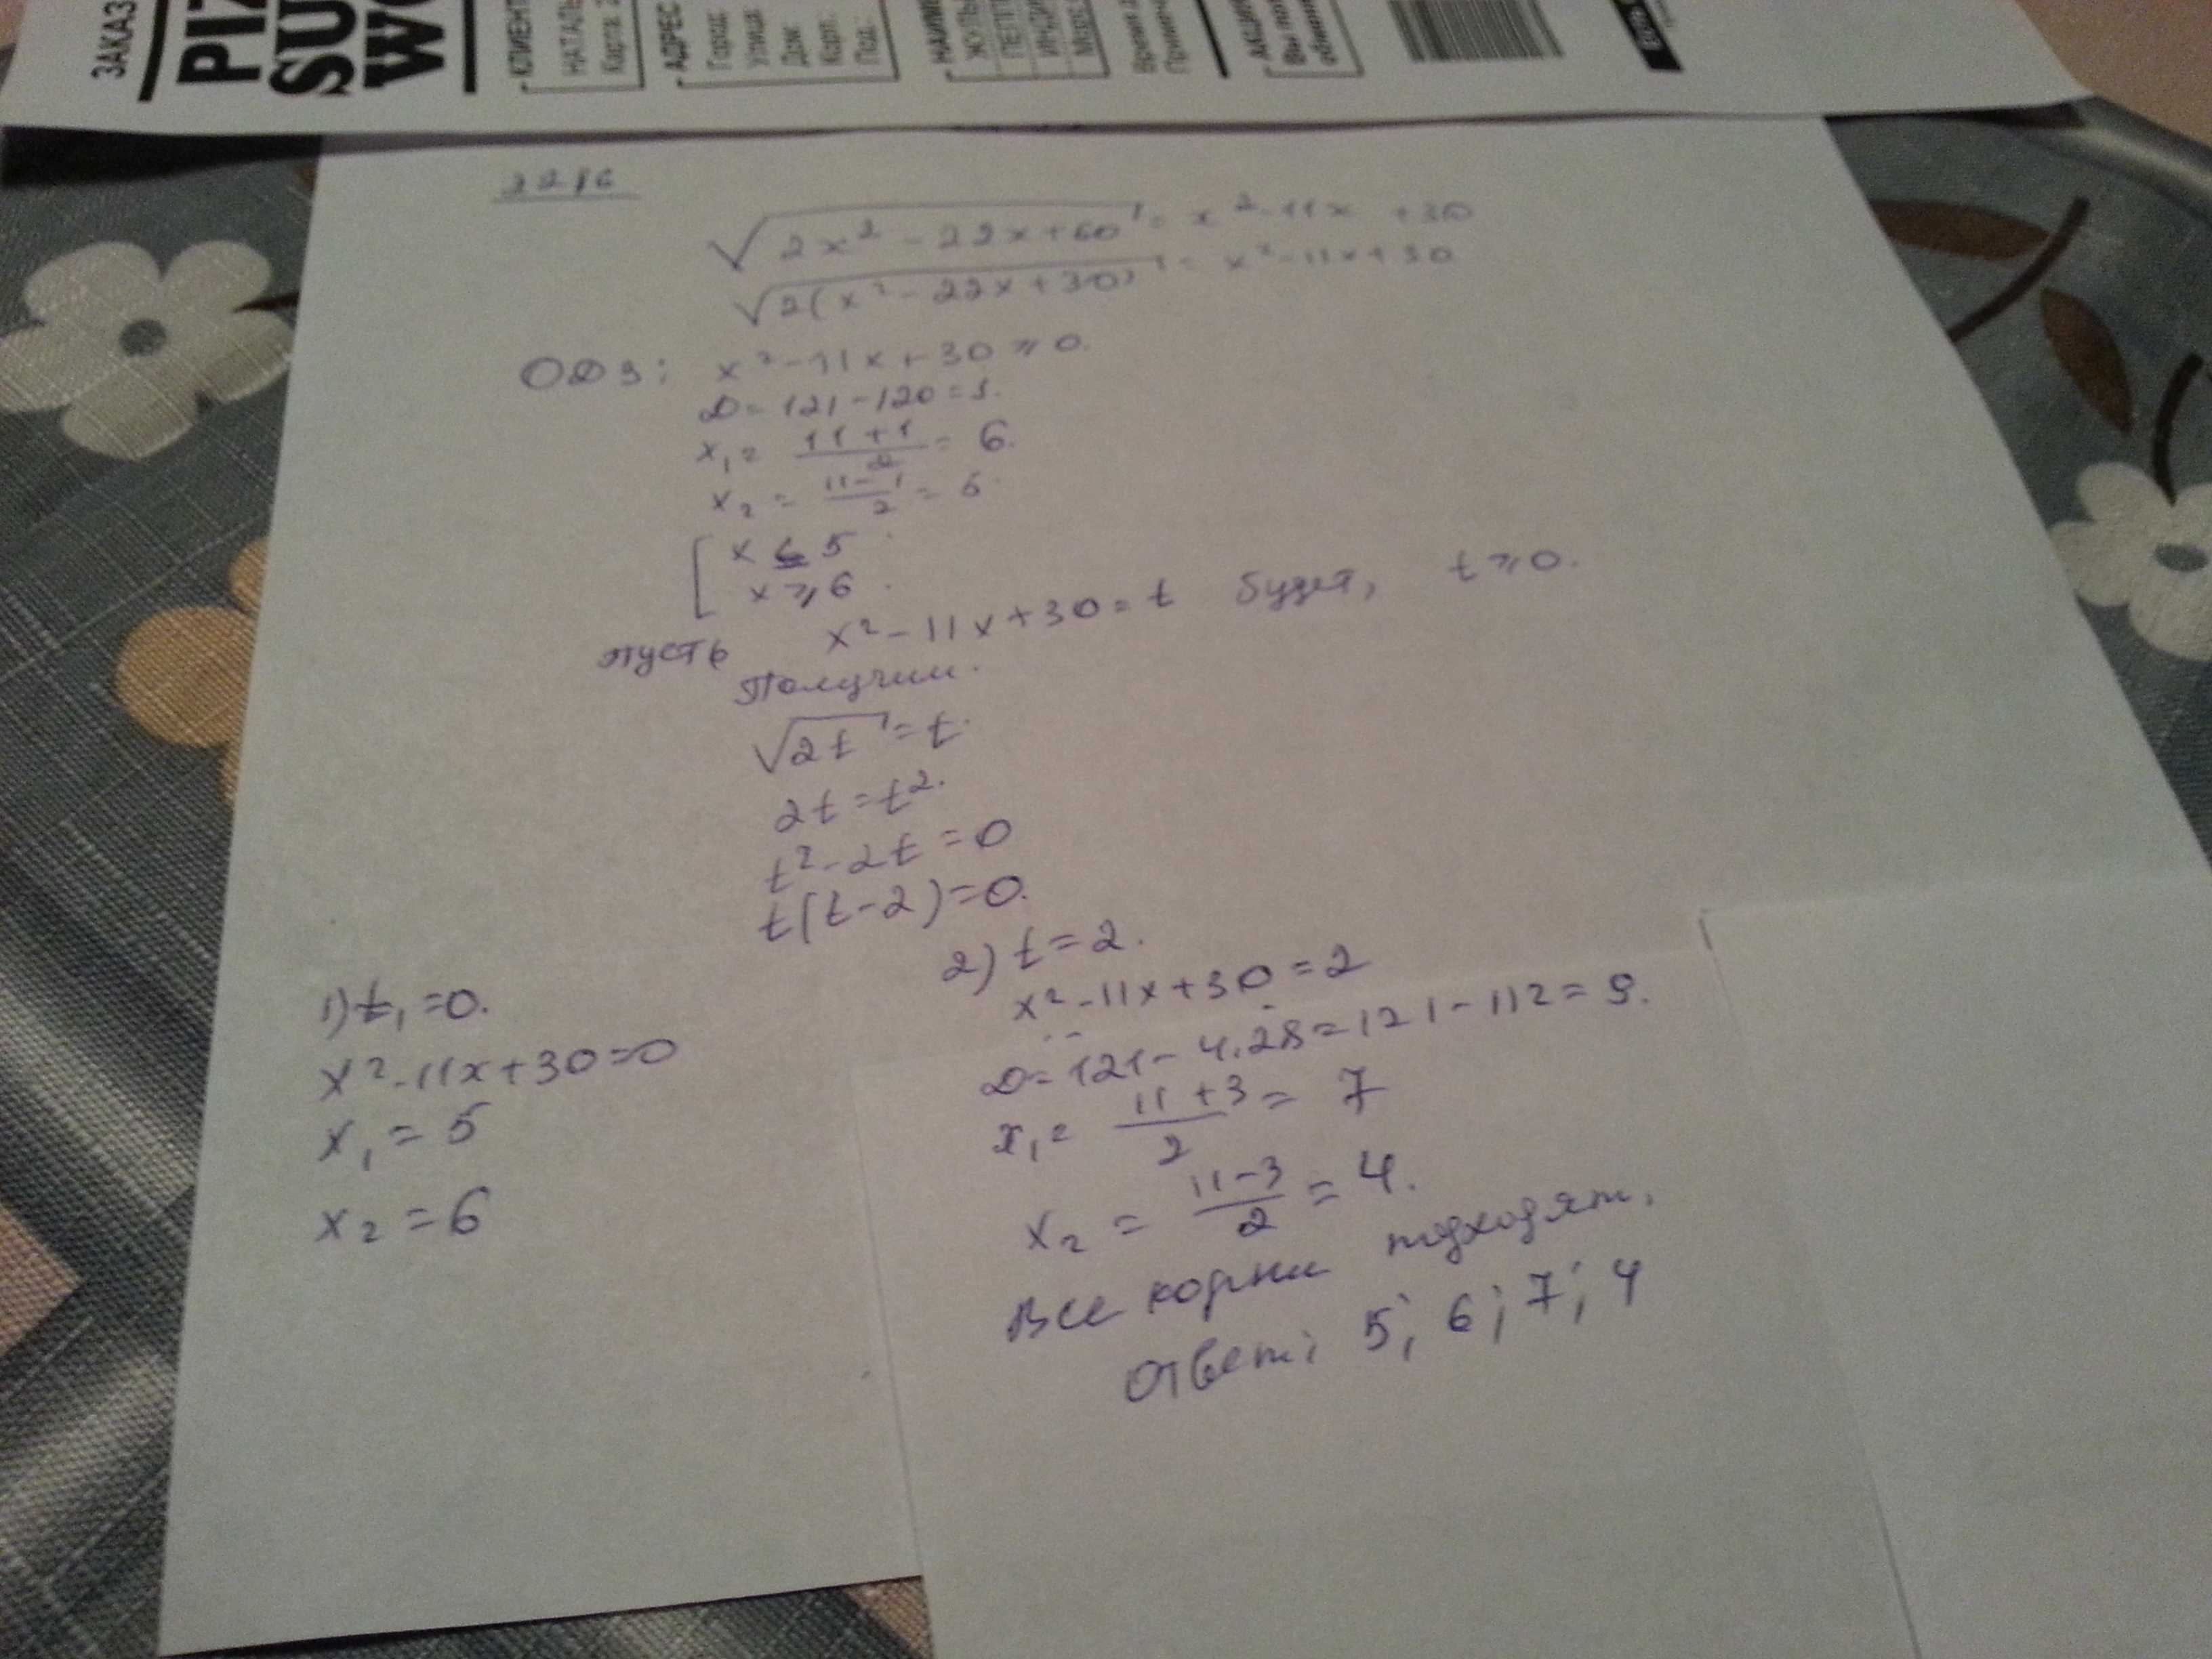 ЗАКАЗ
PIZ
SU
WO
КЛИЕНТ
НАТАЛЬ
Карта: 2
АДРЕС
Город:
Улица:
Дом:
Корп.:
Под.:
НАИМЕ
ЖУЛЬ
ПЕППЕ
ИНДИ
Морс
Время
Примеч
АКЦИ
Вы пол
2216
√(2x² - 22x + 60) = x² - 11x + 30
√(2(x² - 22x + 30)) = x² - 11x + 30
ОДЗ: x² - 11x + 30 ⩾ 0.
D = 121 - 120 = 1.
x₁ = (11 + 1)/2 = 6.
x₂ = (11 - 1)/2 = 5.
[ x ≤ 5
x ⩾ 6.
пусть x² - 11x + 30 = t будет, t ⩾ 0.
Получим.
√(2t) = t.
2t = t².
t² - 2t = 0
t(t - 2) = 0.
1) t₁ = 0.
x² - 11x + 30 = 0
x₁ = 5
x₂ = 6
2) t = 2.
x² - 11x + 30 = 2
D = 121 - 4.28 = 121 - 112 = 9.
x₁ = (11 + 3)/2 = 7
x₂ = (11 - 3)/2 = 4.
Все корни подходят.
Ответ: 5; 6; 7; 4